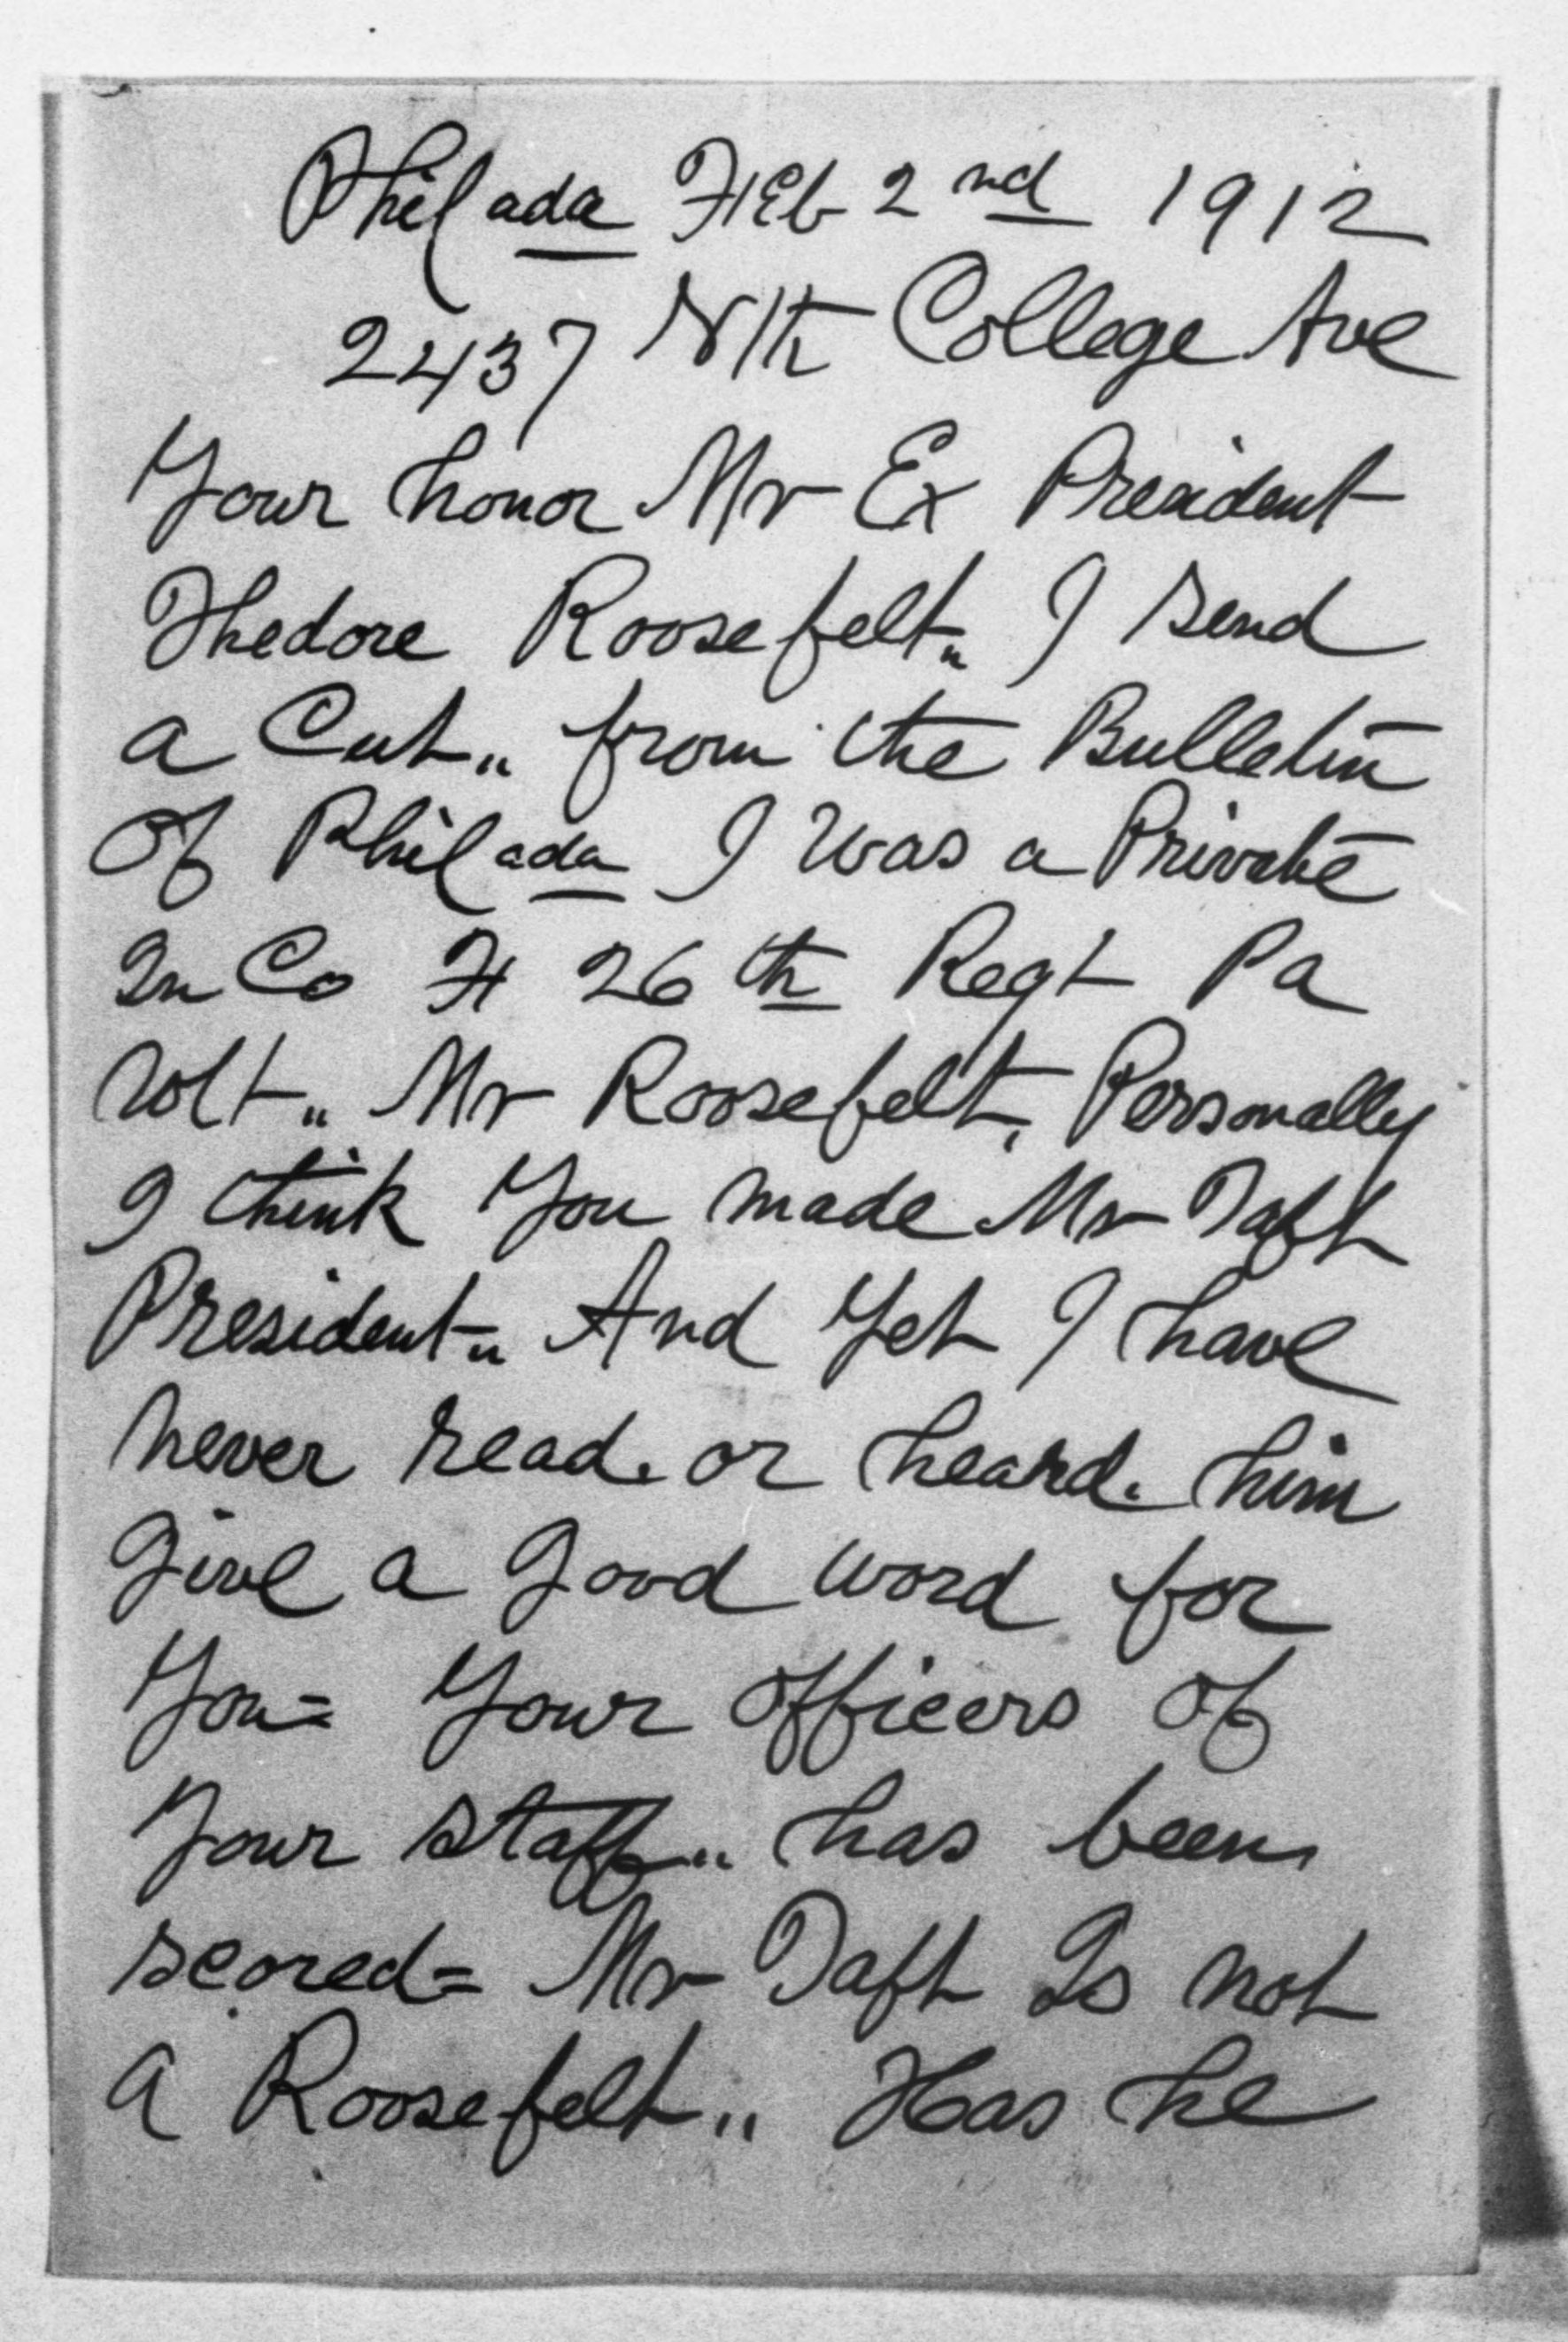 Philada Feb 2nd 1912
2437 Nth College Ave
Your honor Mr Ex President
Thedore Roosefelt„ I send
a Cut„ from the Bulletin
Of Philada I Was a Private
In Co F 26th Regt Pa
Volt„ Mr Roosefelt, Personally
I think You made Mr Taft
President„ And Yet I have
never read. or heard. him
Give a Good word for
You= Your Officers of
Your staff„ has been
scored= Mr Taft Is not
a Roosefelt„ Has he